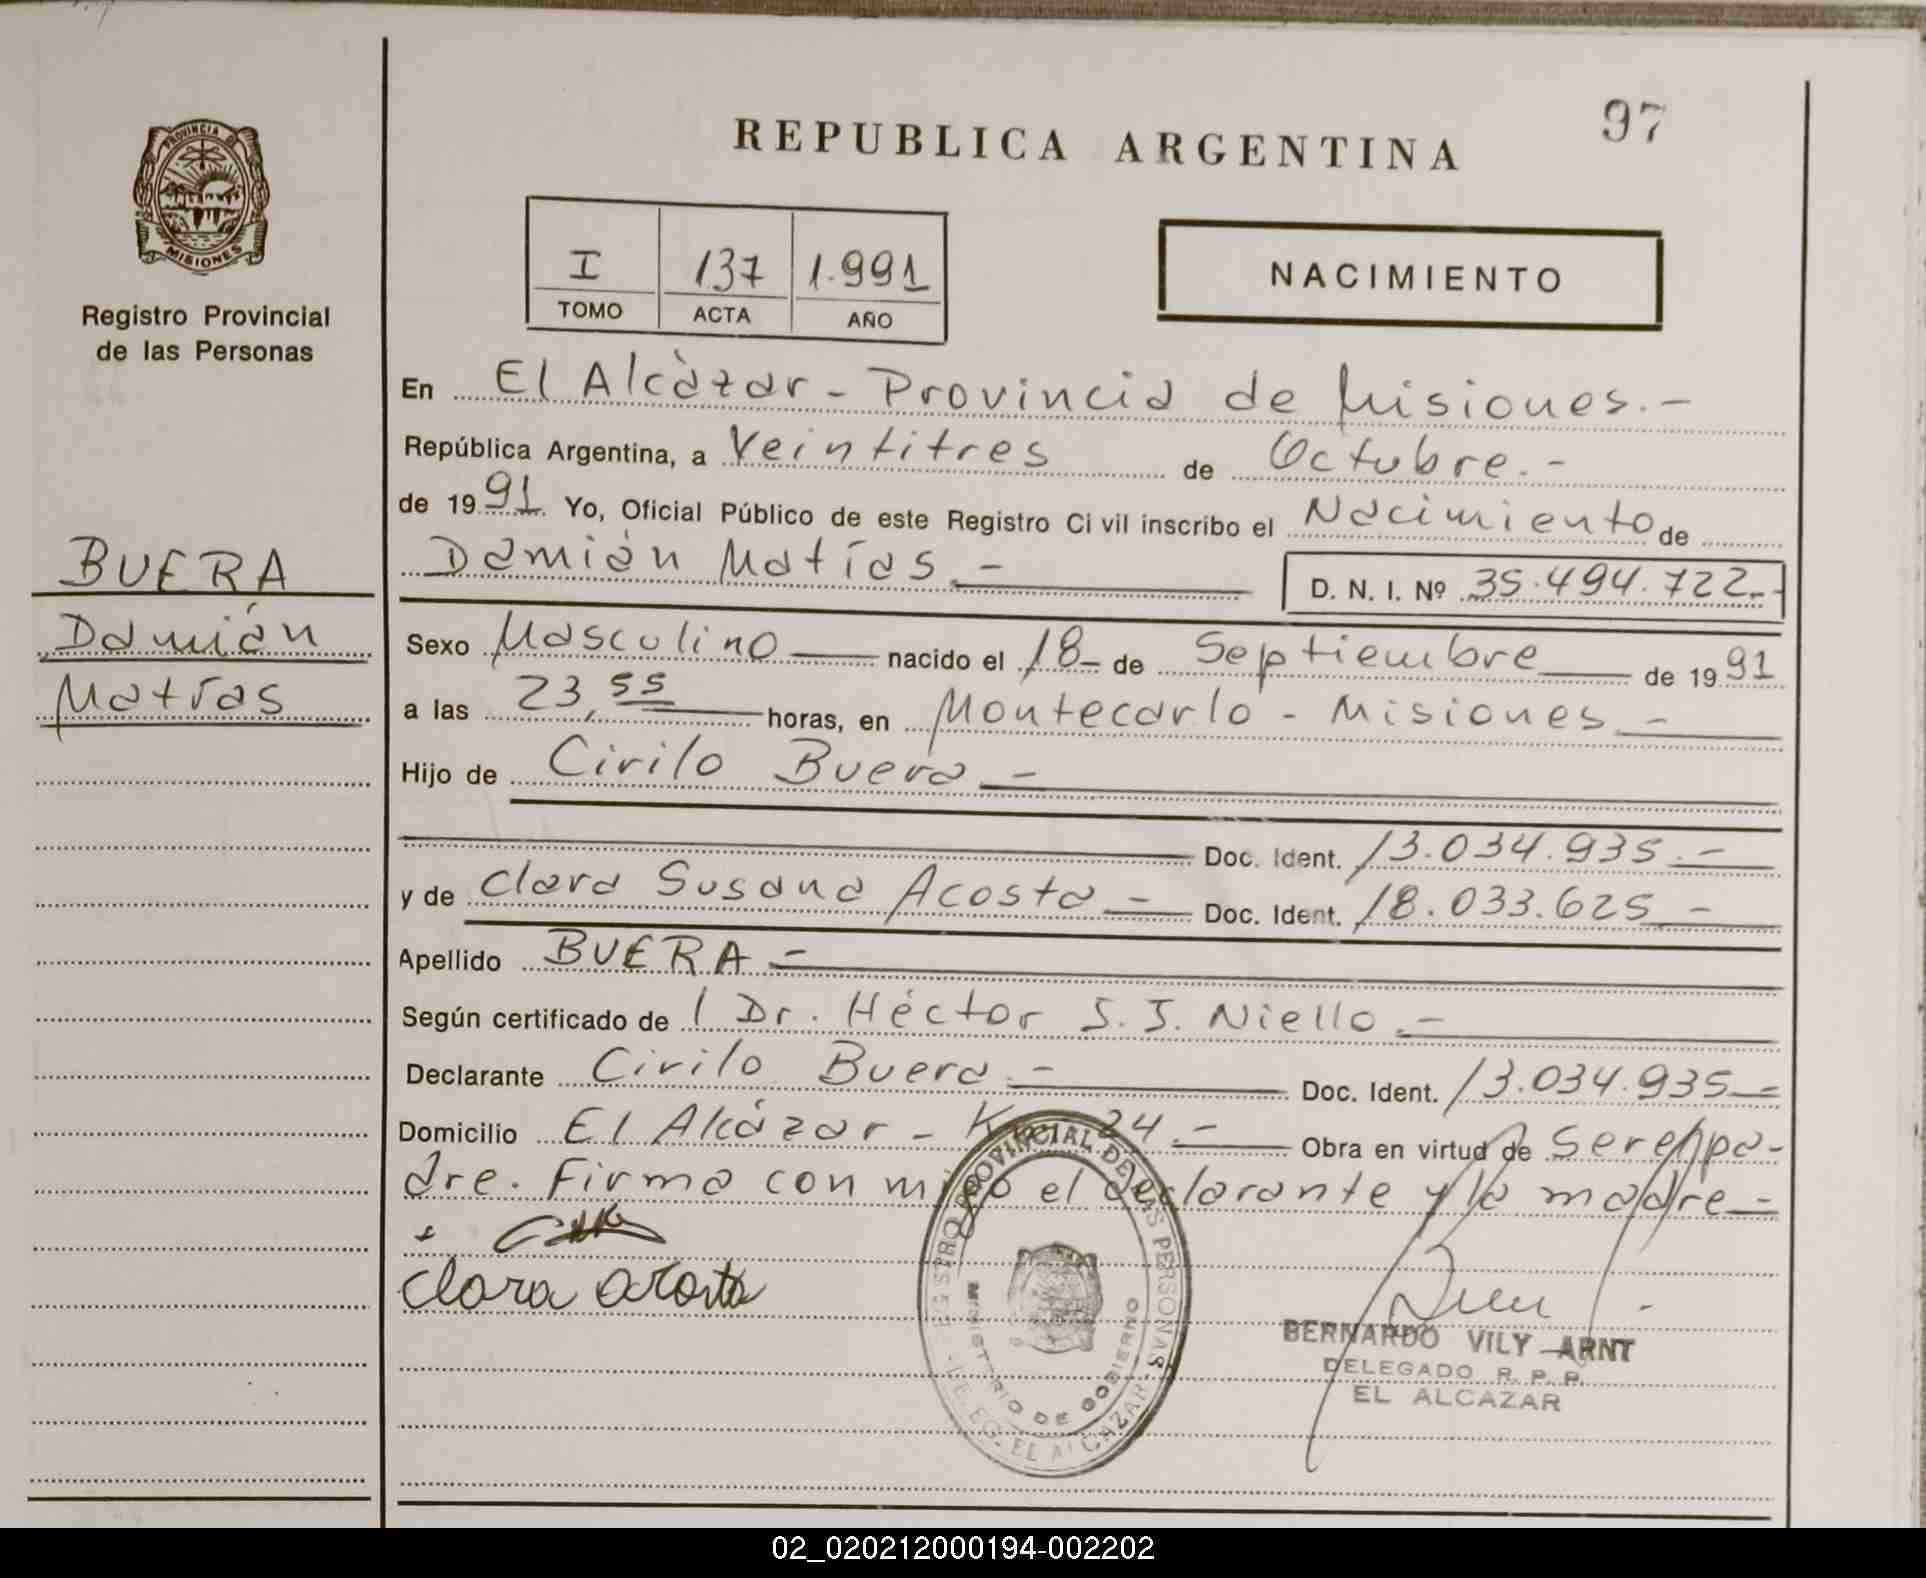 97
REPUBLICA ARGENTINA
PROVINCIA DE
MISIONES
Registro Provincial
de las Personas
I 137 1.991
TOMO ACTA AÑO
NACIMIENTO
En El Alcàzar - Provincia de Misiones.-
República Argentina, a Veintitres de Octubre.-
de 1991 Yo, Oficial Público de este Registro Civil inscribo el Nacimiento de
Damián Matías.- D. N. I. Nº 35.494.722.-
BUERA
Damián
Matías
Sexo Masculino nacido el 18- de Septiembre de 1991
a las 23,55 horas, en Montecarlo - Misiones -
Hijo de Cirilo Buera -
Doc. Ident. 13.034.935.-
y de Clara Susana Acosta - Doc. Ident. 18.033.625 -
Apellido BUERA -
Según certificado de / Dr. Héctor S. J. Niello.-
Declarante Cirilo Buera.- Doc. Ident. 13.034.935-
Domicilio El Alcázar - 24.- Obra en virtud de Ser el pa-
dre. Firma con migo el declarante y la madre -
Clara acosta
REGISTRO PROVINCIAL DE LAS PERSONAS
MINISTERIO DE GOBIERNO
DELEG. EL ALCAZAR
BERNARDO VILY ARNT
DELEGADO R. P. P.
EL ALCAZAR
02_020212000194-002202